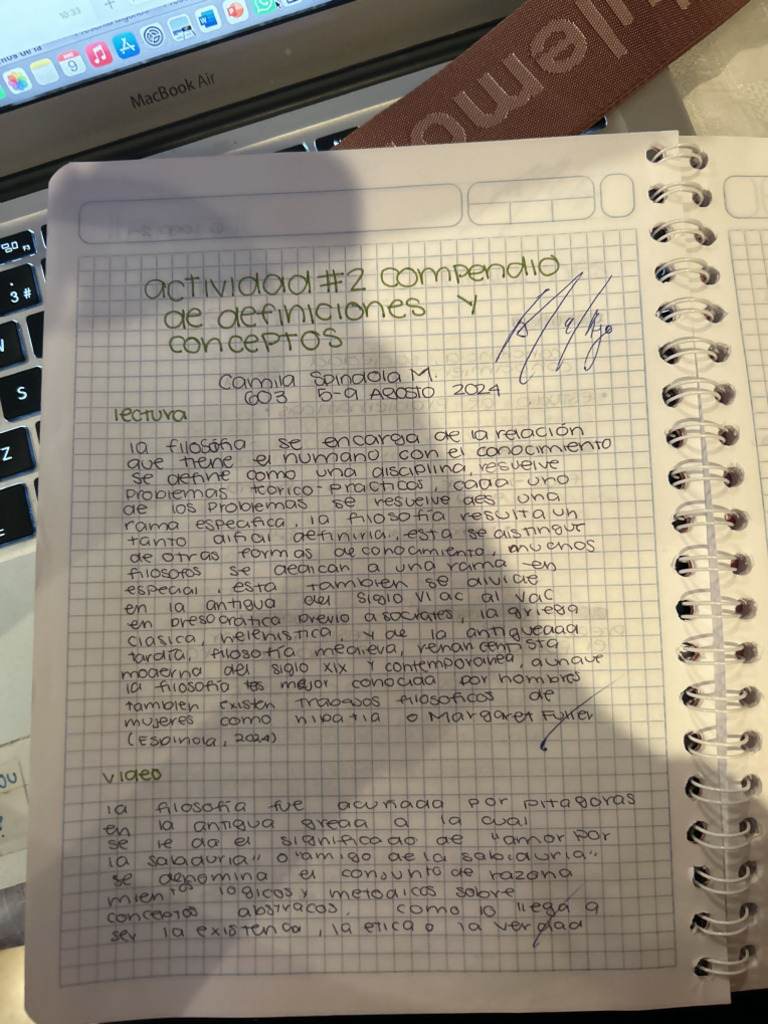 10:33
MacBook Air
actividad #2 compendio
de definiciones y
conceptos
Camila Spindola M.
603 5-9 Agosto 2024
lectura
la filosofia se encarga de la relación
que tiene el humano con el conocimiento
se define como una disciplina, resuelve
problemas teorico-practicos, cada uno
de los problemas se resuelve des una
rama especifica, la filosofía resulta un
tanto dificil definirla, esta se distingue
de otras formas de conocimiento, muchos
filosofos se dedican a una rama en
especial, esta tambien se divide
en la antigua del siglo VI ac al V ac
en presocrática previo a socrates, la griega
clasica, helenistica, y de la antiguedad
tardia, filosofia medieva, renacentista
moderna del siglo XIX y contemporanea, aunque
la filosofia es mejor conocida por hombres
tambien existen trabajos filosoficos de
mujeres como hipatia o Margaret Fuller
(Espinola, 2024)
video
la filosofia fue acuñada por pitagoras
en la antigua grecia a la cual
se le da el significado de "amor por
la sabiduria" o "amigo de la sabiduria"
se denomina el conjunto de razona
mientos logicos y metodicos sobre
conceptos abstracos, como lo llega a
ser la existencia, la etica o la verdad
S
Z
3 #
F3